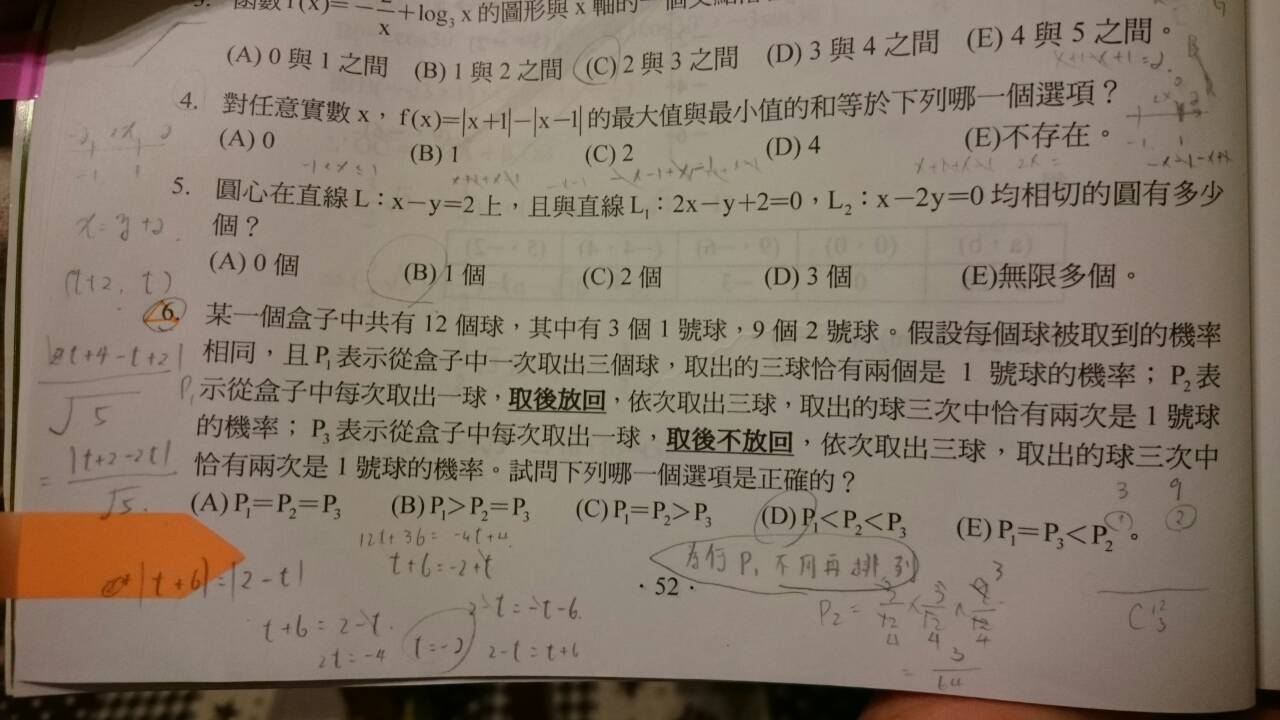 3. 函數 f(x)=－—/x+log₃ x 的圖形與 x 軸的一個交點
(A) 0 與 1 之間 (B) 1 與 2 之間 (C) 2 與 3 之間 (D) 3 與 4 之間 (E) 4 與 5 之間。
4. 對任意實數 x，f(x)=|x+1|－|x－1| 的最大值與最小值的和等於下列哪一個選項？
(A) 0 (B) 1 (C) 2 (D) 4 (E)不存在。
5. 圓心在直線 L：x－y=2 上，且與直線 L₁：2x－y+2=0，L₂：x－2y=0 均相切的圓有多少
個？
(A) 0 個 (B) 1 個 (C) 2 個 (D) 3 個 (E)無限多個。
6. 某一個盒子中共有 12 個球，其中有 3 個 1 號球，9 個 2 號球。假設每個球被取到的機率
相同，且 P₁ 表示從盒子中一次取出三個球，取出的三球恰有兩個是 1 號球的機率；P₂ 表
示從盒子中每次取出一球，取後放回，依次取出三球，取出的球三次中恰有兩次是 1 號球
的機率；P₃ 表示從盒子中每次取出一球，取後不放回，依次取出三球，取出的球三次中
恰有兩次是 1 號球的機率。試問下列哪一個選項是正確的？
(A) P₁＝P₂＝P₃ (B) P₁＞P₂＝P₃ (C) P₁＝P₂＞P₃ (D) P₁＜P₂＜P₃ (E) P₁＝P₃＜P₂。
x=y+2
(t+2, t)
|2t+4-t+2|
√5
= |t+2-2t|
√5
|t+6|=|2-t|
t+6=2-t
2t=-4
t=-2
12t+36=-4t+4
t+6=-2+t
2-t=-t-6
2-t=t+6
為何 P₁ 不用再排列
·52·
P₂ = 3/12 × 3/12 × 9/12
= 3/64
3 9
① ②
C 12 3